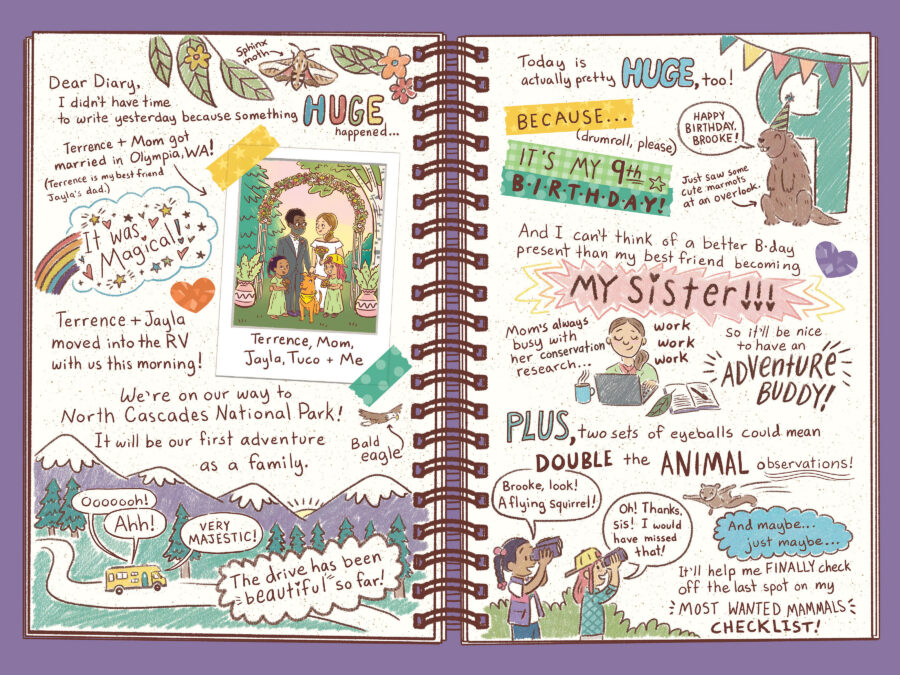 Sphinx
moth
Dear Diary,
I didn't have time
to write yesterday because something HUGE
happened...
Terrence + Mom got
married in Olympia, WA!
(Terrence is my best friend
Jayla's dad.)
It was
Magical!
Terrence, Mom,
Jayla, Tuco + Me
Terrence + Jayla
moved into the RV
with us this morning!
We're on our way to
North Cascades National Park!
It will be our first adventure
as a family.
Bald
eagle
Ooooooh!
Ahh!
VERY
MAJESTIC!
The drive has been
beautiful so far!
Today is
actually pretty HUGE, too!
BECAUSE...
(drumroll, please)
IT'S MY 9th
B·I·R·T·H·D·A·Y!
9
HAPPY
BIRTHDAY,
BROOKE!
Just saw some
cute marmots
at an overlook.
And I can't think of a better B·day
present than my best friend becoming
MY SiSTER!!!
Mom's always
busy with
her conservation
research...
work
work
work
so it'll be nice
to have an
ADVENTURE
BUDDY!
PLUS, two sets of eyeballs could mean
DOUBLE the ANIMAL observations!
Brooke, look!
A flying squirrel!
Oh! Thanks,
sis! I would
have missed
that!
And maybe...
just maybe...
It'll help me FINALLY check
off the last spot on my
MOST WANTED MAMMALS
CHECKLIST!